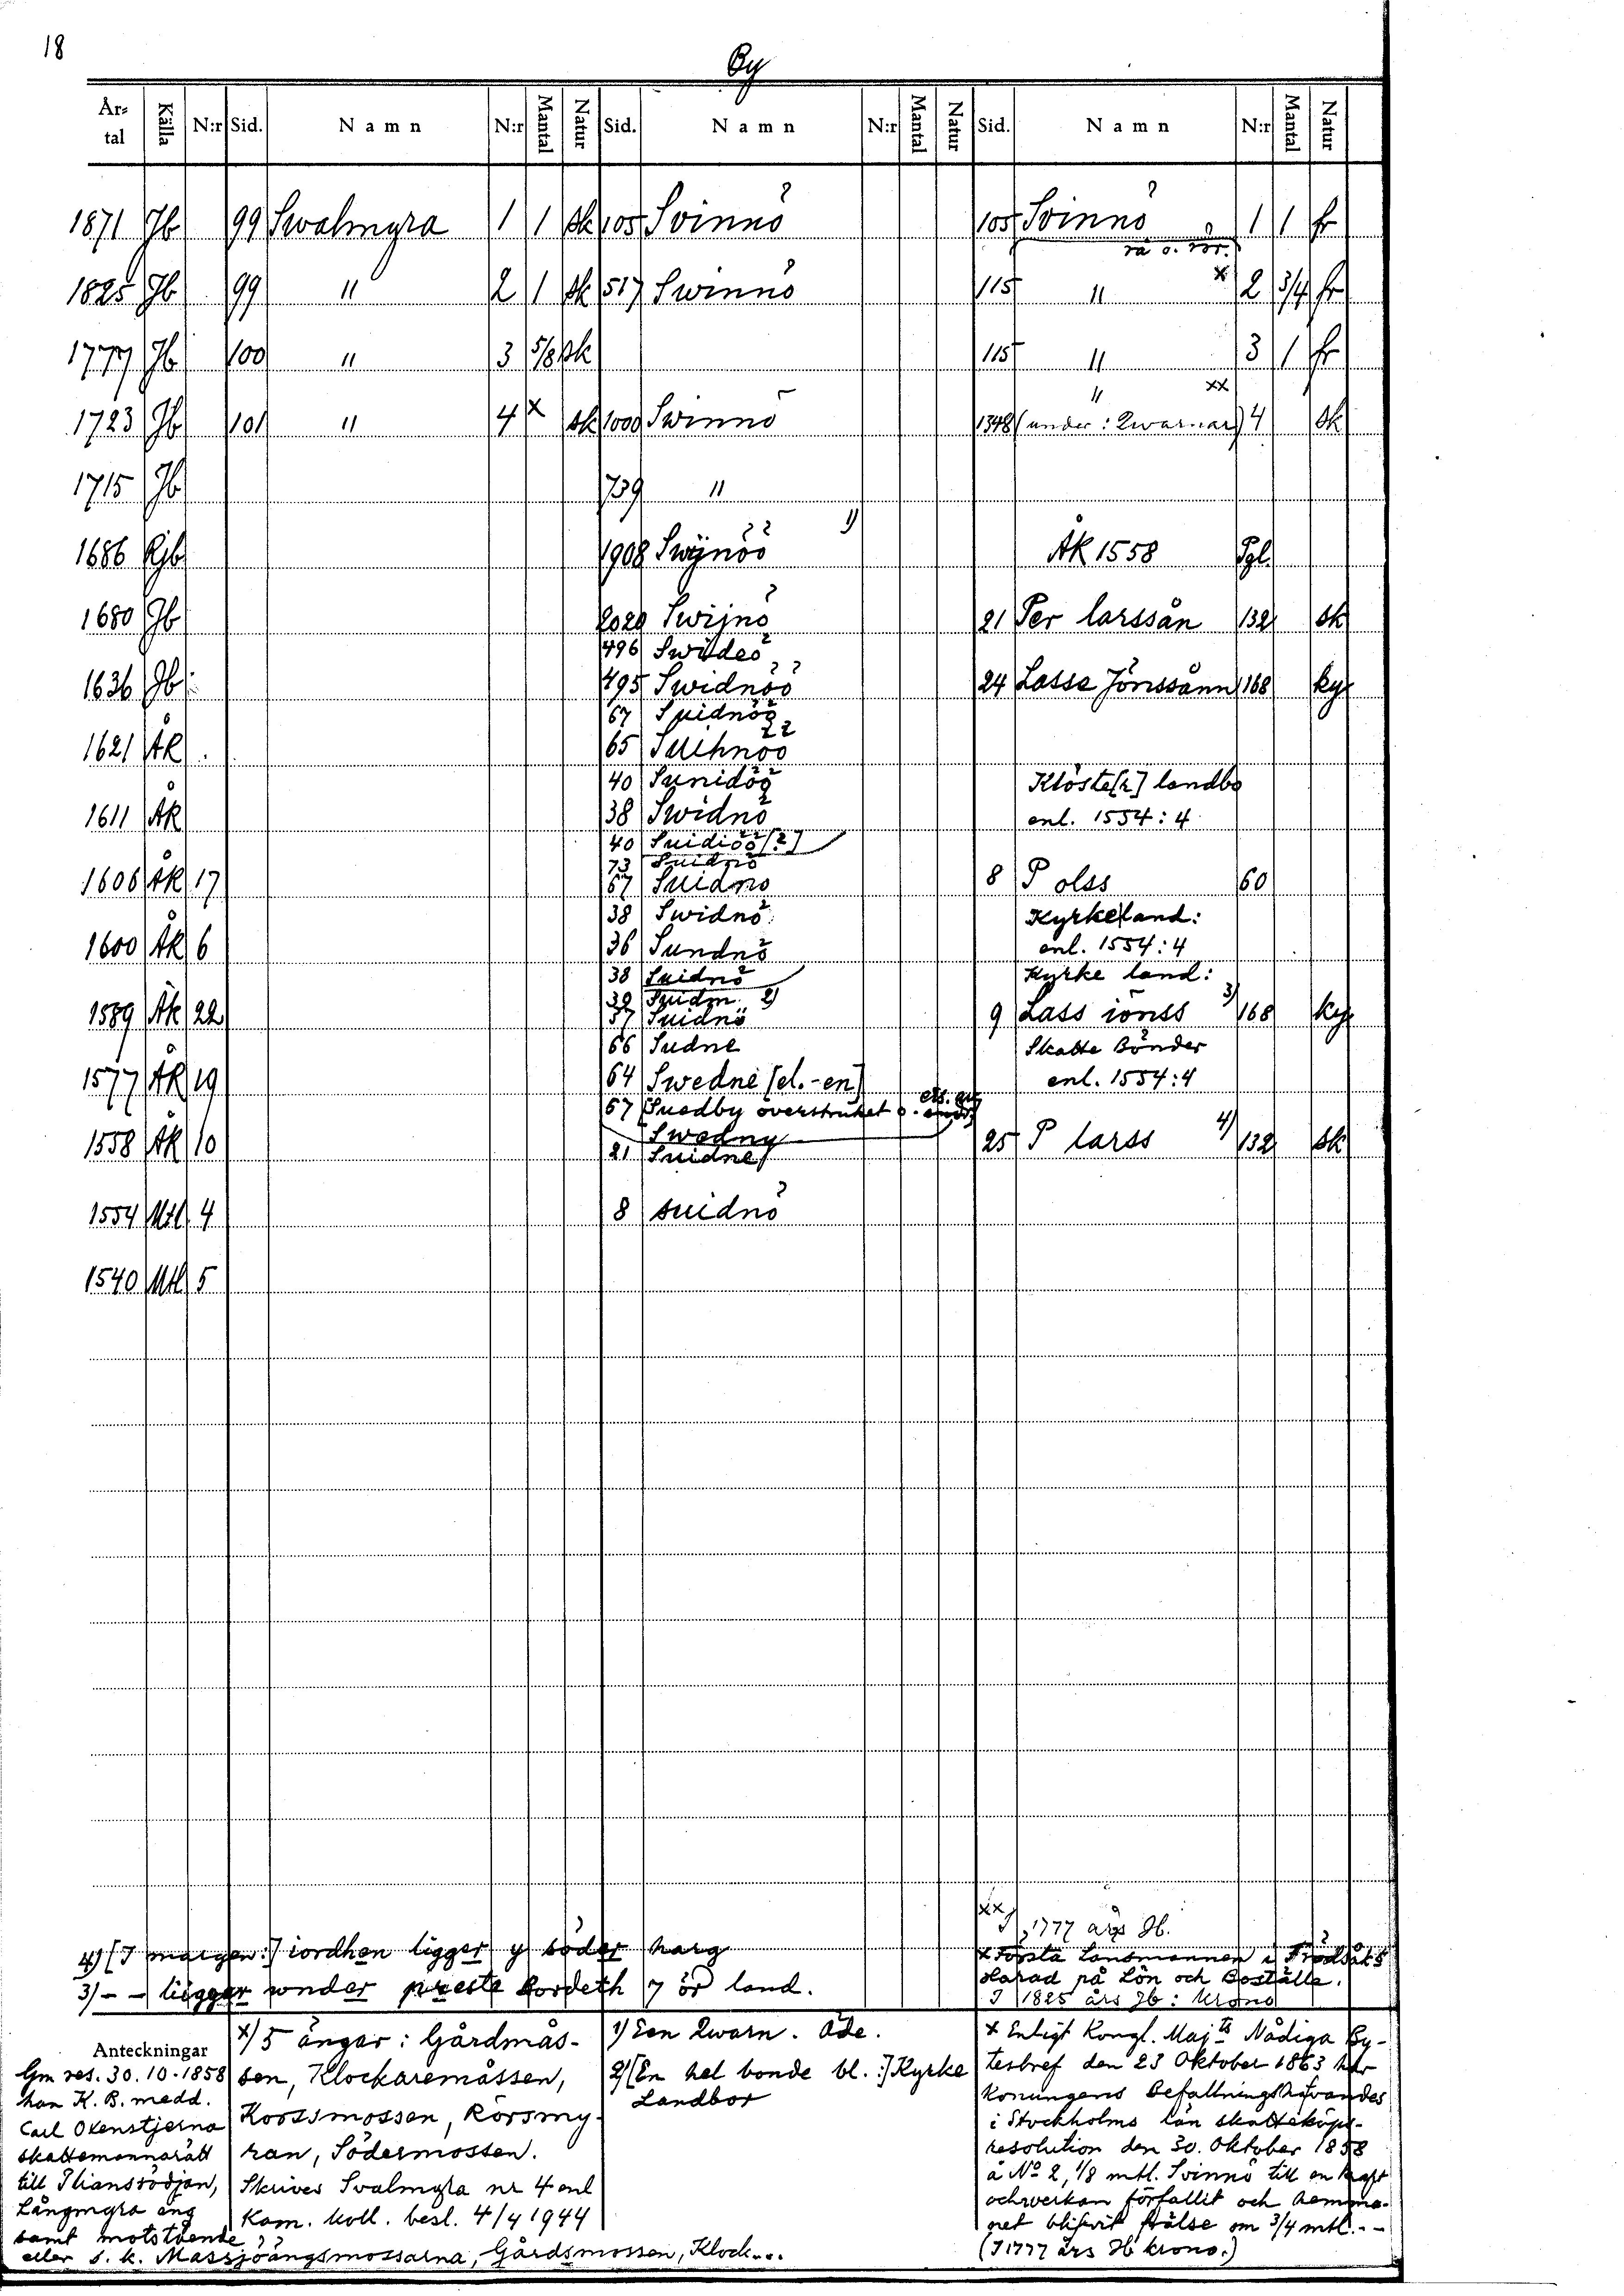 18
By
År-tal Källa N:r Sid. Namn N:r Mantal Natur Sid. Namn N:r Mantal Natur Sid. Namn N:r Mantal Natur
1871 Jb 99 Swalmyra 1 1 sk 105 Svinnö 105 Svinnö 1 1 fr
1825 Jb 99 " 2 1 sk 517 Swinnö 115 " x 2 3/4 fr
1777 Jb 100 " 3 5/8 sk 115 " 3 1 fr
" xx
1723 Jb 101 " 4 x sk 1000 Swinnö 1348 (under: Qwarnar) 4 sk
1715 Jb 739 "
1686 Jb 1908 Swÿnöö 1) ÄK 1558
1680 Jb 2029 Swijnö 21 Per larssån 132 sk
496 Swideö
1636 Jb 495 Swidnöö 24 Lasse Jönssånn 168 ky
67 Suidnöö
1621 ÅK 65
40 Klöste[r] landbo
1611 ÅK 38 Swidnö enl. 1554:4
40 Suidiöö [?]
73 Suidnö
1606 ÅK 17 67 Suidno 8 P olss 60
38 Swidnö Kyrkeland:
1600 ÅK 6 36 Sundnö enl. 1554:4
38 Suidnö Kyrke land:
39 Suidm. 2)
1589 ÅK 22 37 Suidnö 9 Lass ionss 3) 168 ky
66 Sudne Skatte Bönder
1577 ÅK 19 64 Swedne [el. -en] enl. 1554:4
67 Suedby överstruket o.
Swedny
1558 ÅK 10 21 Suidne 25 P larss 4) 132 sk
1554 Mtl 4 8 suidnö
1540 Mtl 5
xx) I 1777 års Jb.
4) [I margen:] iordhen ligger y söder harg
x Första Landmannen i
3) - - ligger wnder preste bordeth 7 ör land.
Harad på Lön och Boställe.
I 1825 års Jb: Krono
Anteckningar
Gm res. 30.10.1858
han K. B. medd.
Carl Oxenstjerna
skattemannarätt
till
Långmyra äng
samt motstående
eller s. k. Massjöängsmossarna, Gårdsmossen, Klock...
x) 5 ängar: Gårdmås-
sen, Klockaremåssen,
Koossmossen, Rörsmy-
ran, Södermossen.
Skrives Svalmyra nr 4 enl
Kam. koll. besl. 4/4 1944
1) Een Qwarn. Öde.
2) [En hel bonde bl.:] Kyrke
Landbor
x Enligt Kongl. Maj:ts Nådiga By-
tesbref den 23 Oktober 1863 har
Konungens Befallningshafvandes
i Stockholms län skatteköps-
resolution den 30. Oktober 1858
å No 2, 1/8 mtl. Svinnö till en kraft
ochwerkan förfallit och hemma-
net blifwit frälse om 3/4 mtl. - -
(I 1777 års Jb krono.)